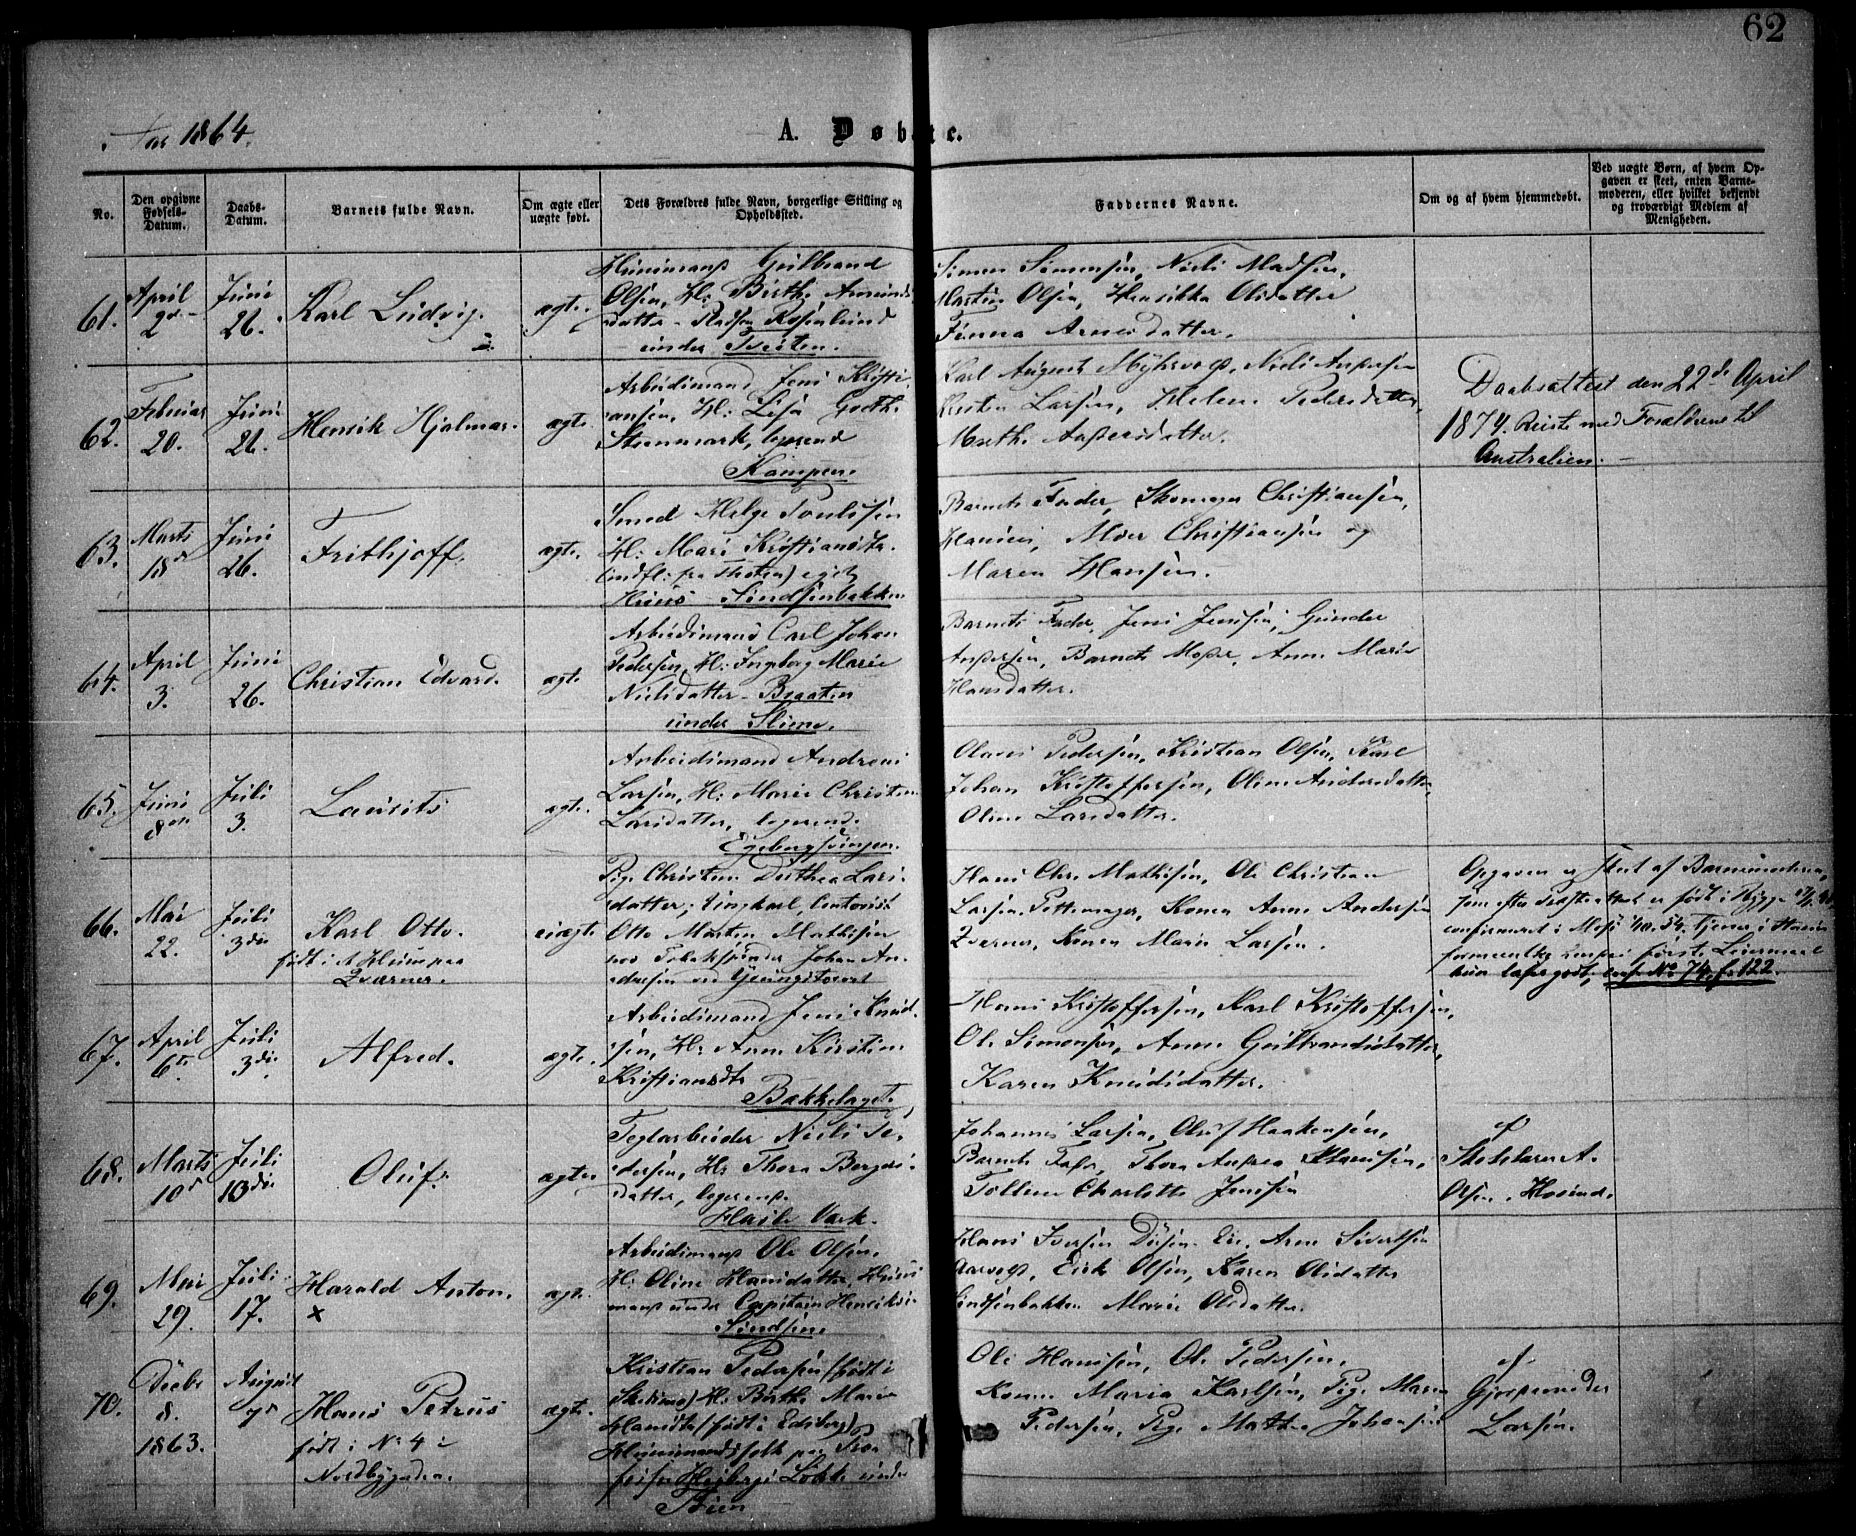 62
Aar 1864.
A. Døbte.
No.
Den opgivne Fødsels-Datum.
Daabs-Datum.
Barnets fulde Navn.
Om ægte eller uægte født.
Dets Forældres fulde Navn, borgerlige Stilling og Opholdssted.
Faddernes Navne.
Om og af hvem hjemmedøbt.
Ved uægte Børn, af hvem Opgaven er skeet, enten Barnemoderen, eller hvilket bekjendt og troværdigt Medlem af Menigheden.
61. April 2 Juni 26. Karl Ludvig. ægte.
Huusmand Gulbrand
Olsen, H: Birthe Amunds
datter - Pladsen Rosenlund
under Tveten.
Simen Simensen, Niels Madsen,
Martin Olsen, Henrikka Olsdatter
Finna Arnesdatter.
62. Februar 20. Juni 26. Henrik Hjalmar. ægte.
Arbeidsmand Jens Kristi
ansen, H: Lisa Greth.
Steenmark, logerend
Kampen.
Karl August Myhrvold, Niels Andersen
Kristen Larsen, Helene Pedersdatter,
Marthe Andersdatter.
Daabsattest den 22de April
1874. Reiste med Forældrene til
Australien.
63. Marts 18de Juni 26. Frithjoff. ægte.
Smed Helge Poulssen
H: Mari Kristiansdtr
(indfl: fra Thoten) eget
Huus Sindsenbakken
Barnets Fader, Skomager Christiansen,
Hansen, Moer Christiansen og
Maren Hansen.
64. April 3. Juni 26. Christian Edvard. ægte
Arbeidsmand Carl Johan
Pedersen, H: Ingeborg Marie
Nielsdatter - Braaten
under Slime.
Barnets Fader, Jens Jensen, Gunder
Andersen, Barnets Moder, Anne Marie
Hansdatter.
65. Juni 8de Juli 3. Laurits ægte.
Arbeidsmand Andreas
Larsen, H: Marie Christine
Larsdatter, logerend.
Egebergsvingen.
Olaus Pedersen, Kristian Olsen, Karl
Johan Kristoffersen, Oline Andersdatter,
Oline Larsdatter.
66. Mai 22. Juli 3die Karl Otto. uægte
født i Huus paa
Qværner.
Pige Christine Dorthea Lars-
datter; Ungkarl,
Otto Morten Mathisen
hos Tobakspinder Johan An-
dersen ved Grünigstorvet
Hans Chr. Mathisen, Ole Christian
Larsen Pottemager, Konen Anne Andersen
Qværner, Konen Marie Larsen.
Opgaven er skeet af Barnemoderen,
som efter Præsteattest er født i Rygge
confirmeret i Moss 1/10. 54. Tjener i
første Leiermaal
No. 74, f. 122.
67. April 6te Juli 3die Alfred. ægte.
Arbeidsmand Jens Knud-
sen, H: Anne Kirstine
Kristiansdtr
Bækkelaget.
Hans Kristoffersen, Karl Kristoffersen,
Ole Simensen, Anne Gulbrandsdatter,
Karen Knudsdatter.
68. Marts 10de Juli 13die Oluf. ægte
Teglarbeider Niels Pe-
dersen, H: Thora Bergers-
datter, logerend.
Hasle Værk.
Johannes Larsen, Oluf Haakensen,
Barnets Fader, Thora Andrea Hansen,
Polline Charlotte Jensen
af
Skolelærer A.
Olsen.
69. Mai 29. Juli 17. Harald Anton. ægte.
x
Arbeidsmand Ole Olsen,
H: Oline Hansdatter, Huus
mand under Capitain Henriksen
Sindsen.
Hans Iversen Disen Eie, Arne Sivertsen
Aarvold, Eirk Olsen, Karen Olsdatter
Sindsenbakken Marie Olsdatter.
70. Decbr 8. 1863. August 7de Hans Petrus ægte.
født i No 4 i
Nordbygaden.
Kristian Pedersen (født i
Skedsmo) H: Birthe Marie
Hansdtr (født i Edsberg)
Huusmandsfolk paa Pro
fessor Heibergs Løkke under
Tøien
Ole Hansen, Ole Pedersen,
Konen Maria Karlsen, Pige Maren
Pedersen, Pige Mathea Johansen
af
Gjordemoder
Larsen.